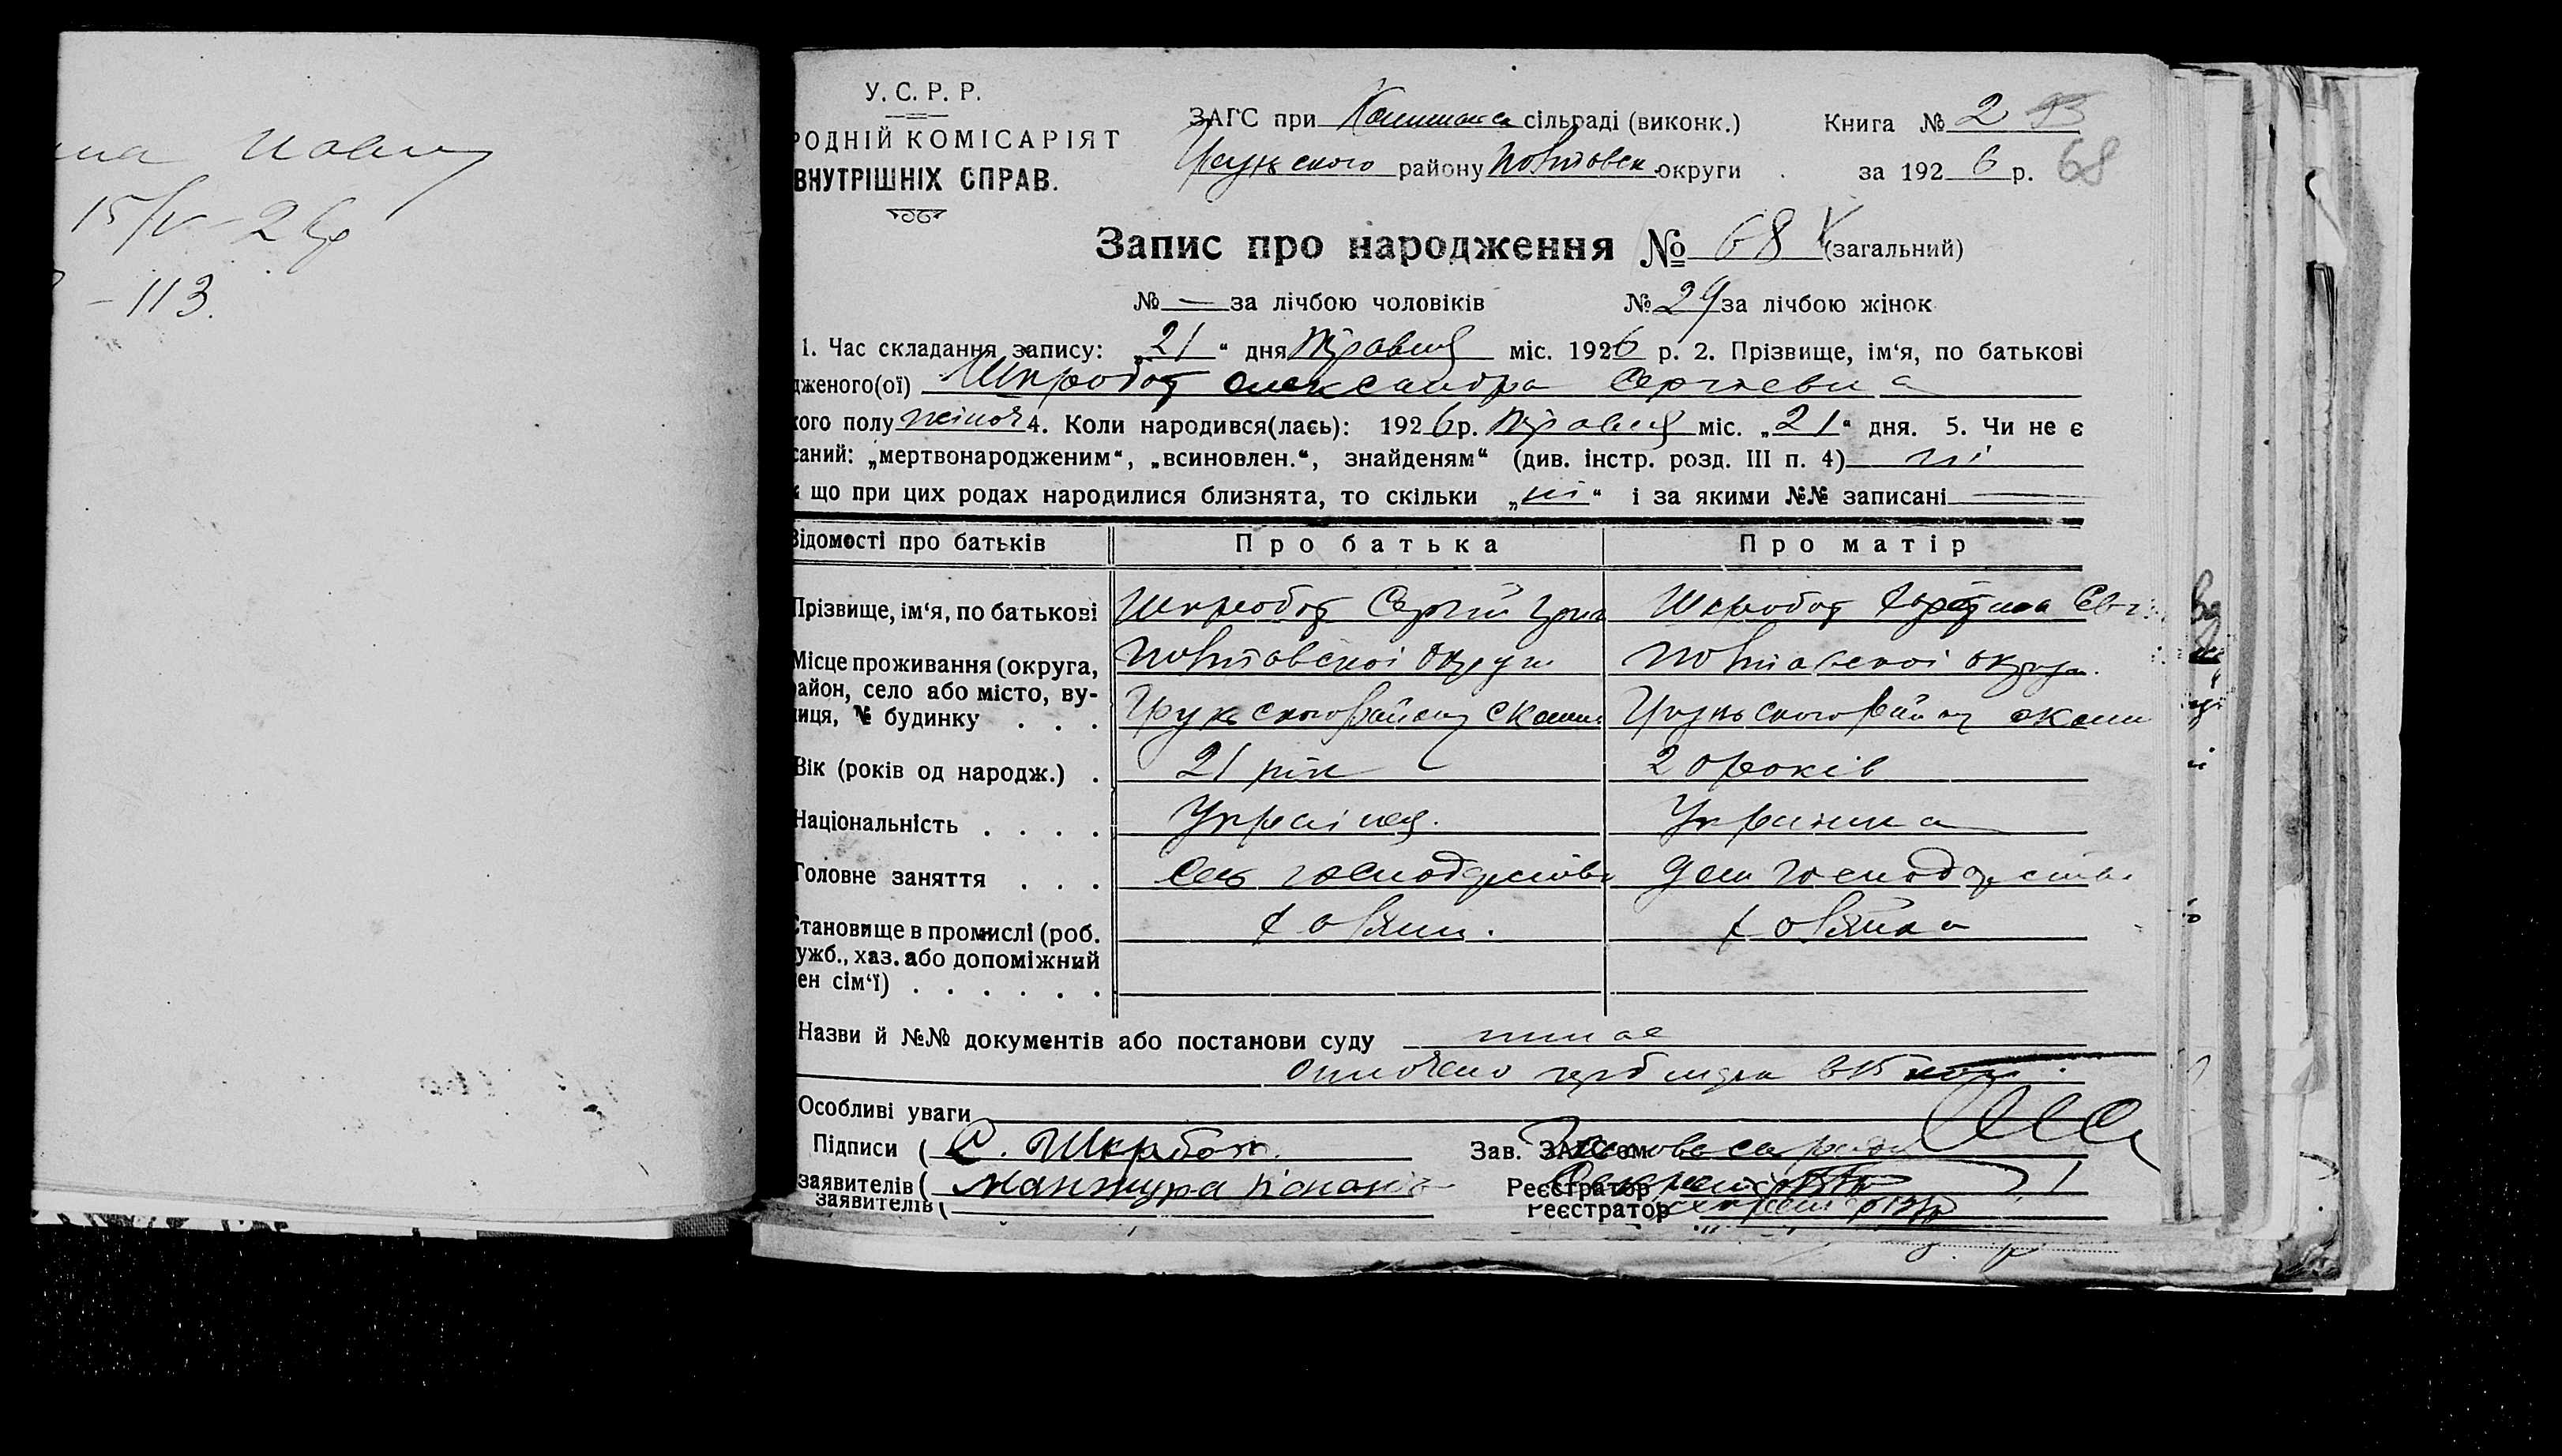 15/V-26р
-113.
У. С. Р. Р.
РОДНІЙ КОМІСАРІЯТ
ВНУТРІШНІХ СПРАВ.
ЗАГС при сільраді (виконк.)
Грунського району Полтавськ округи
Книга № 2
за 1926 р. 68
Запис про народження № 68 (загальний)
№ — за лічбою чоловіків № 29 за лічбою жінок
1. Час складання запису: „21“ дня Травня міс. 1926 р. 2. Прізвище, ім‘я, по батькові
дженого(ої) Шкробот Олександра Сергієвна
кого полу жіноч 4. Коли народився(лась): 1926р. Травня міс. „21“ дня. 5. Чи не є
саний: „мертвонародженим“, „всиновлен.“, знайденям“ (див. інстр. розд. III п. 4) ні
що при цих родах народилися близнята, то скільки „ні“ і за якими №№ записані —
Відомості про батьків Про батька Про матір
Прізвище, ім‘я, по батькові Шкробот Сергій Шкробот
Місце проживання (округа, Полтавської округи Полтавської округи.
район, село або місто, ву-
лиця, № будинку . . . Грунського району Грунського району
Вік (років од народж.) . 21 рік 20 років
Національність . . . . Украінец. Украинка
Головне заняття . . . Сель господарство Дом господарство
Становище в промислі (роб.
ужб., хаз. або допоміжний
ен сім‘ї) . . . . . .
Назви й №№ документів або постанови суду немає
Особливі уваги
Підписи ( С. Шкробот. Зав. ЗАГСом
заявителів ( Манжура Реєстратор
заявителів ( Реєстратор